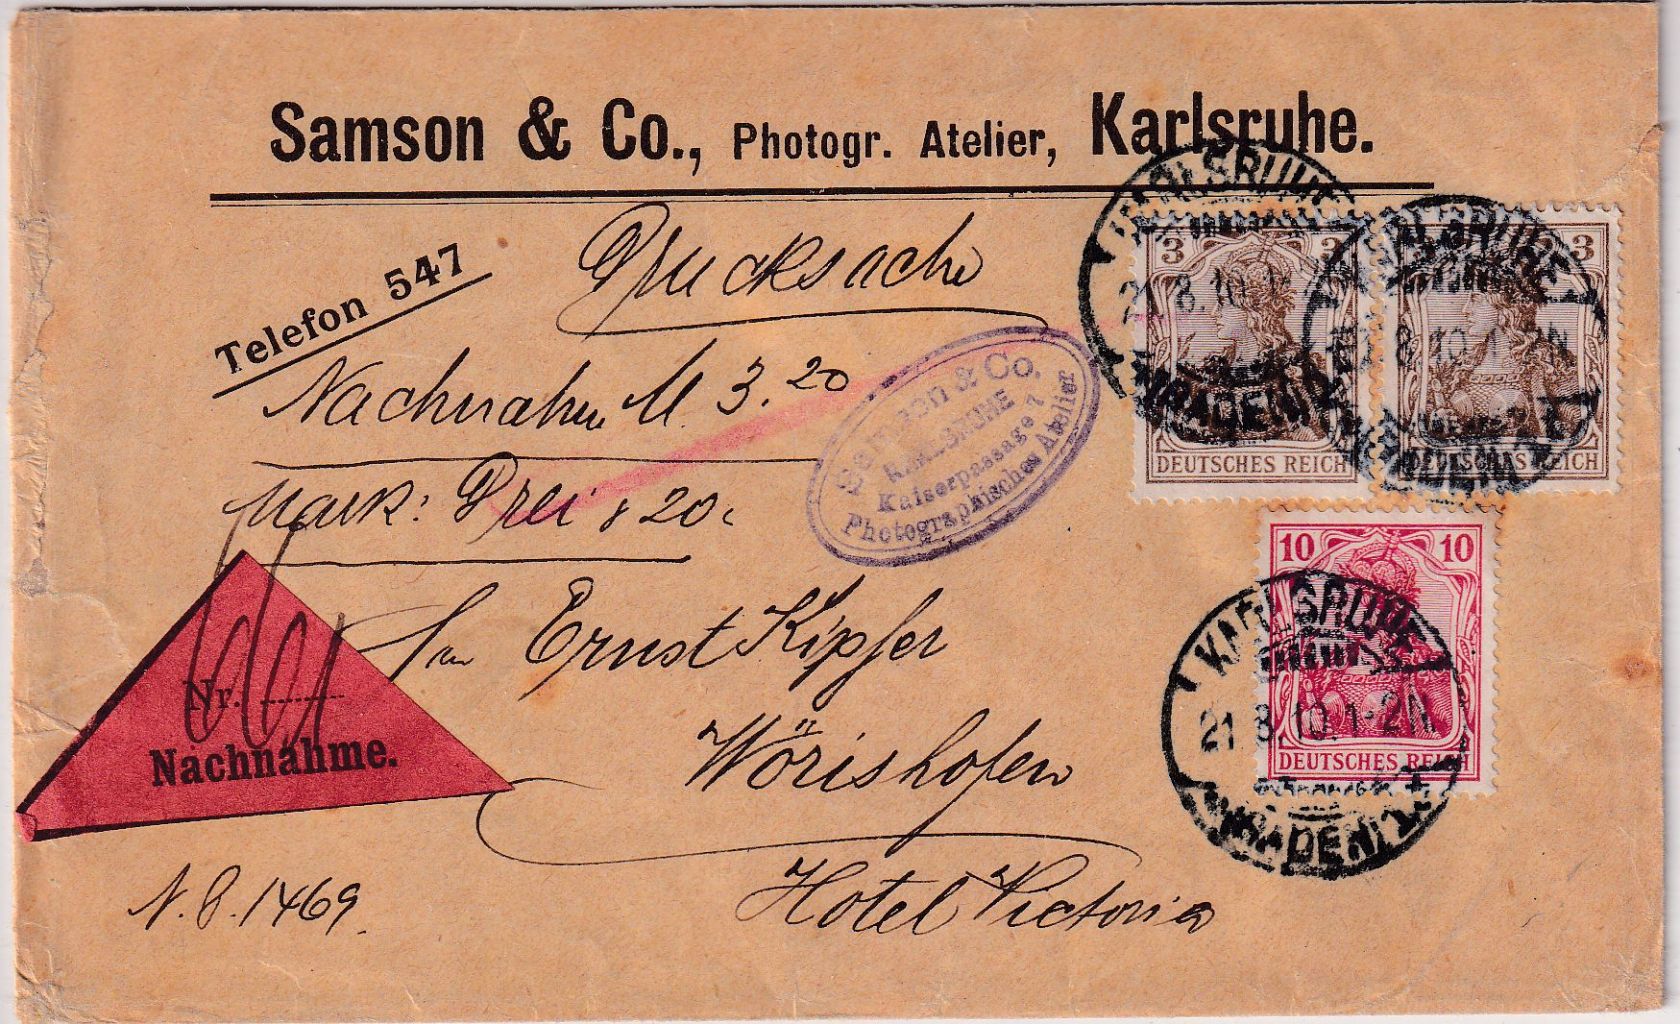 Samson & Co., Photogr. Atelier, Karlsruhe.
Telefon 547
Drucksache
Nachnahme M 3.20
Mark: Drei & 20.
Samson & Co.
KARLSRUHE
Kaiserpassage 7
Photographisches Atelier
KARLSRUHE
21.8.10.
(BADEN)
3 3
DEUTSCHES REICH
KARLSRUHE
8.10.1-2N
(BADEN)
3
DEUTSCHES REICH
10 10
DEUTSCHES REICH
KARLSRUHE
21.8.10.1-2N
(BADEN) 1
Nr.
Nachnahme.
Ernst Kipfer
Wörishofen
Hotel Victoria
N. 8.1469.